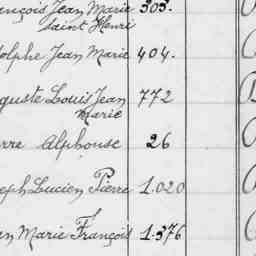 ançois Jean Marie 303.
Saint Henri
dolphe Jean Marie 404.
guste Louis Jean 772
Marie
erre Alphonse 26
eph Lucien Pierre 1.020
en Marie François 1.376